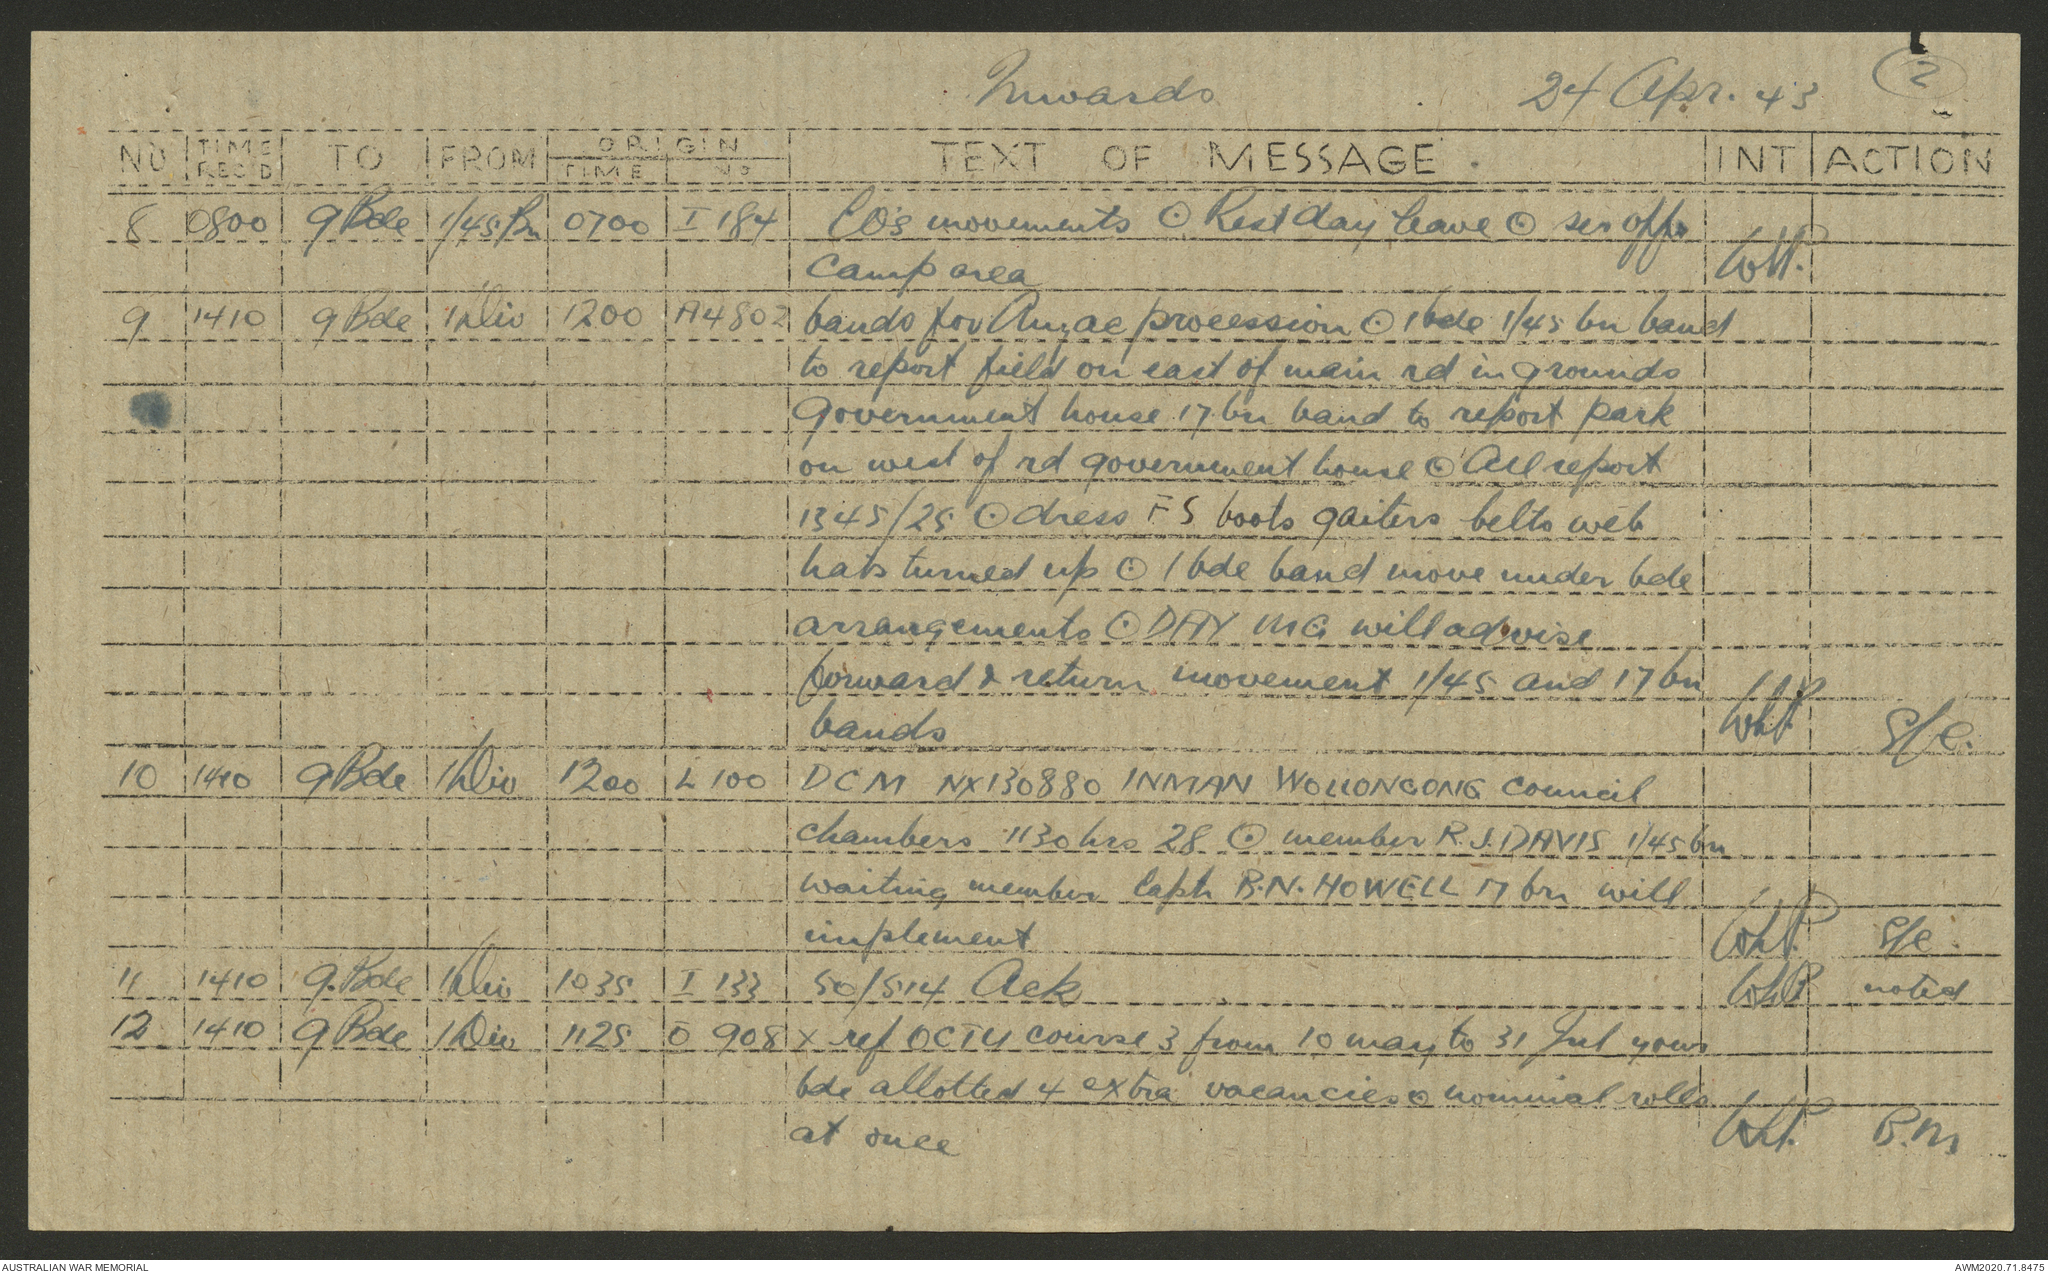 Inwards 24 Apr. 43 2
NO TIME REC'D TO FROM ORIGIN TIME NO TEXT OF MESSAGE. INT ACTION
8 0800 9 Bde 1/45 Bn 0700 I 184 CO's movements ⊙ Rest day leave ⊙ ser offr
camp area
9 1410 9 Bde 1 Div 1200 A4802 bands for Anzac procession ⊙ 1 bde 1/45 bn band
to report field on east of main rd in grounds
government house 17 bn band to report park
on west of rd government house ⊙ All report
1345/25 ⊙ dress FS boots gaiters belts web
hats turned up ⊙ 1 bde band move under bde
arrangements ⊙ DAY MG will advise
forward & return movement 1/45 and 17 bn
bands S/C.
10 1410 9 Bde 1 Div 1200 L 100 DCM NX130880 INMAN WOLLONGONG Council
chambers 1130 hrs 28 ⊙ member R.J. DAVIS 1/45 bn
waiting member Capt R.N. HOWELL 17 bn will
implement S/C.
11 1410 9 Bde 1 Div 1035 I 133 SO/514 Ack noted
12 1410 9 Bde 1 Div 1125 O 908 x ref OCTU course 3 from 10 may to 31 Jul yours
bde allotted 4 extra vacancies ⊙ nominal rolls
at once B.M.
AUSTRALIAN WAR MEMORIAL AWM2020.71.8475